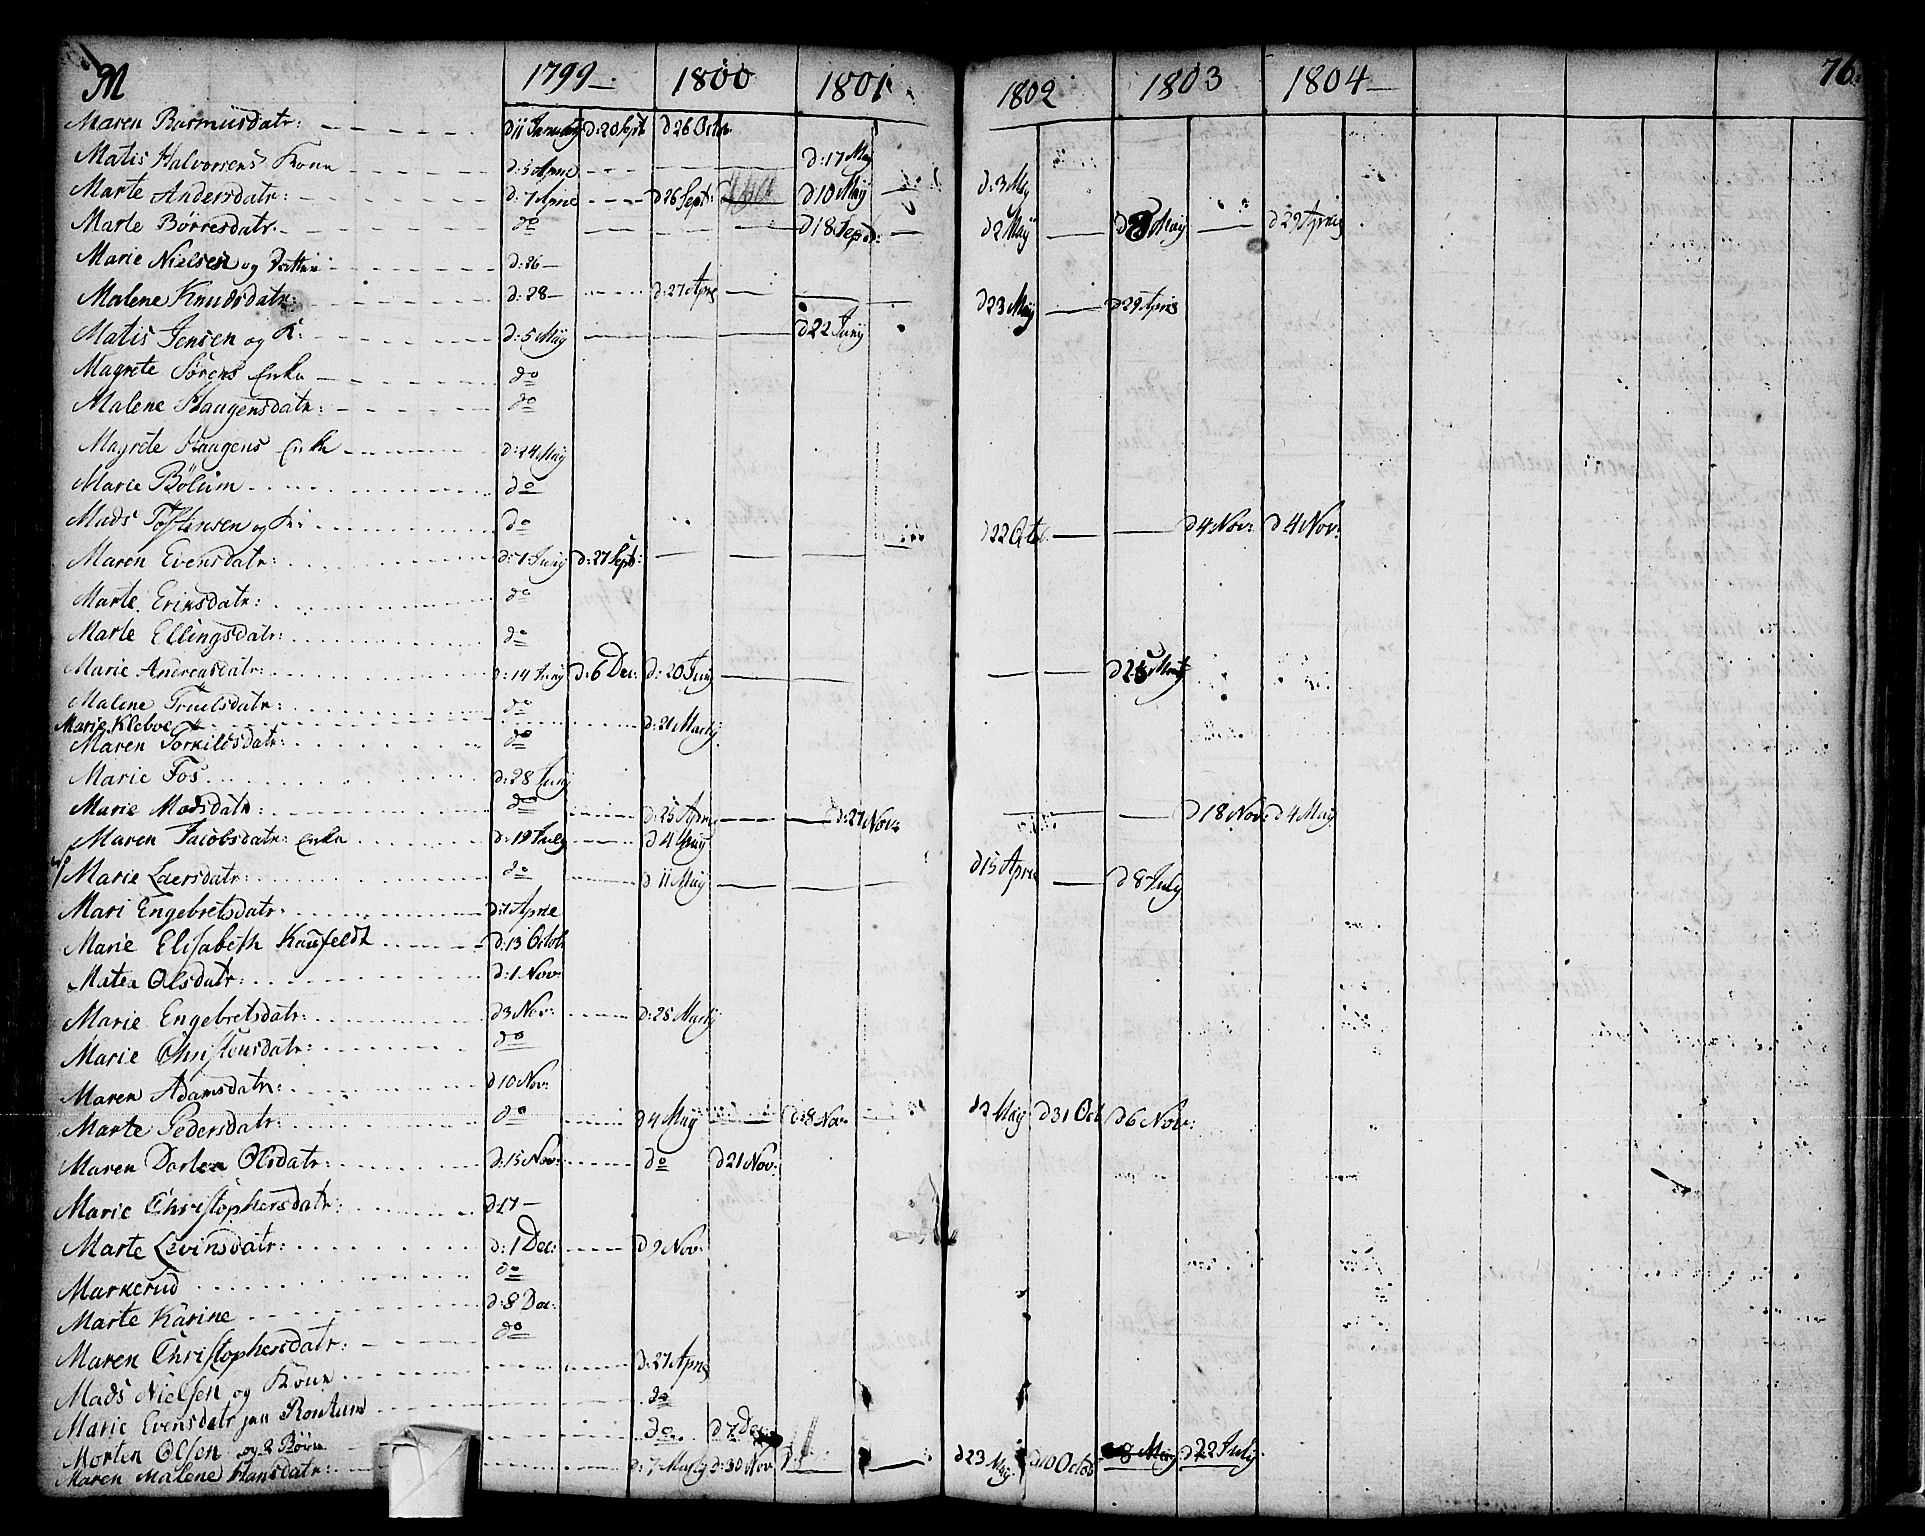 M 1799 1800 1801 1802 1803 1804 76.
Maren Rasmusdatr: d 11 Januarij d: 20 Sept d 26 Octr.
Matis Halvorsens Kone d: 5 Aprie d: 17 Maij
Marte Andersdatr: d: 7 Aprie d 26 Sept: d 10 Maij d: 3 Maij
Marte Börresdatr. do d 18 Sept: d 2 Maij Maij d 29 Apriis
Marie Nielsen og Datter d: 26
Malene Knudsdatr: d: 28 d: 27 Apr d 23 Maij d 29 Apriis
Matis Jensen og K: d: 5 Maij d 22 Junij
Magrete Sörens Enke do
Malene Haugensdatr: do
Magrete Haugens Enke d: 24 Maij
Marie Bölum do
Mads Tostensen og K: do d 22 Octr d 4 Nov: d 4 Nov:
Maren Evensdatr: d: 7 Junij d: 27 Sept:
Marte Eriksdatr: do
Marte Ellingsdatr: do
Marie Andreasdatr: d: 14 Junij d: 6 Dec: d: 20 Junij
Malene Truelsdatr: do
Marie Kleboe d: 21 Martij
Maren Torkildsdatr: do
Marie Fos d: 28 Junij
Marie Madsdatr: do d: 25 Aprie d: 27 Nov: d 18 Nov: d 4 Maij
Maren Jacobsdatr: Enke d: 19 July d 4 Maij
Marie Laersdatr: do d 11 Maij d 15 Aprie d 8 July
Mari Engebretsdatr: d: 7 Aprie
Marie Elisabeth Kaufeldt d: 13 Octob
Matea Olsdatr: d: 1 Nov:
Marie Engebretsdatr: d 3 Nov: d: 25 Martij
Marie Christensdatr: do
Maren Adamsdatr: d 10 Nov:
Marte Pedersdatr: do d 4 Maij d: 8 Nov: d 2 Maij d 31 Oct d 6 Nov:
Maren Dorlea Olsdatr: d: 15 Nov: do d 21 Nov:
Marie Christophersdatr: d 17
Marte Levinsdatr: d: 1 Dec: d 9 Nov:
Markerud do
Marte Karine d: 8 Dec:
Maren Christophersdatr: do
d: 27 Apriis
Mads Nielsen og Kone do
Marie Evensdatr do d 7 Dec:
Morten Olsen og 2 Börn
Maren Malene Hansdatr: d: 7 Martij d: 30 Nov d 23 Maij d 10 Octob 8 Maij d 22 July